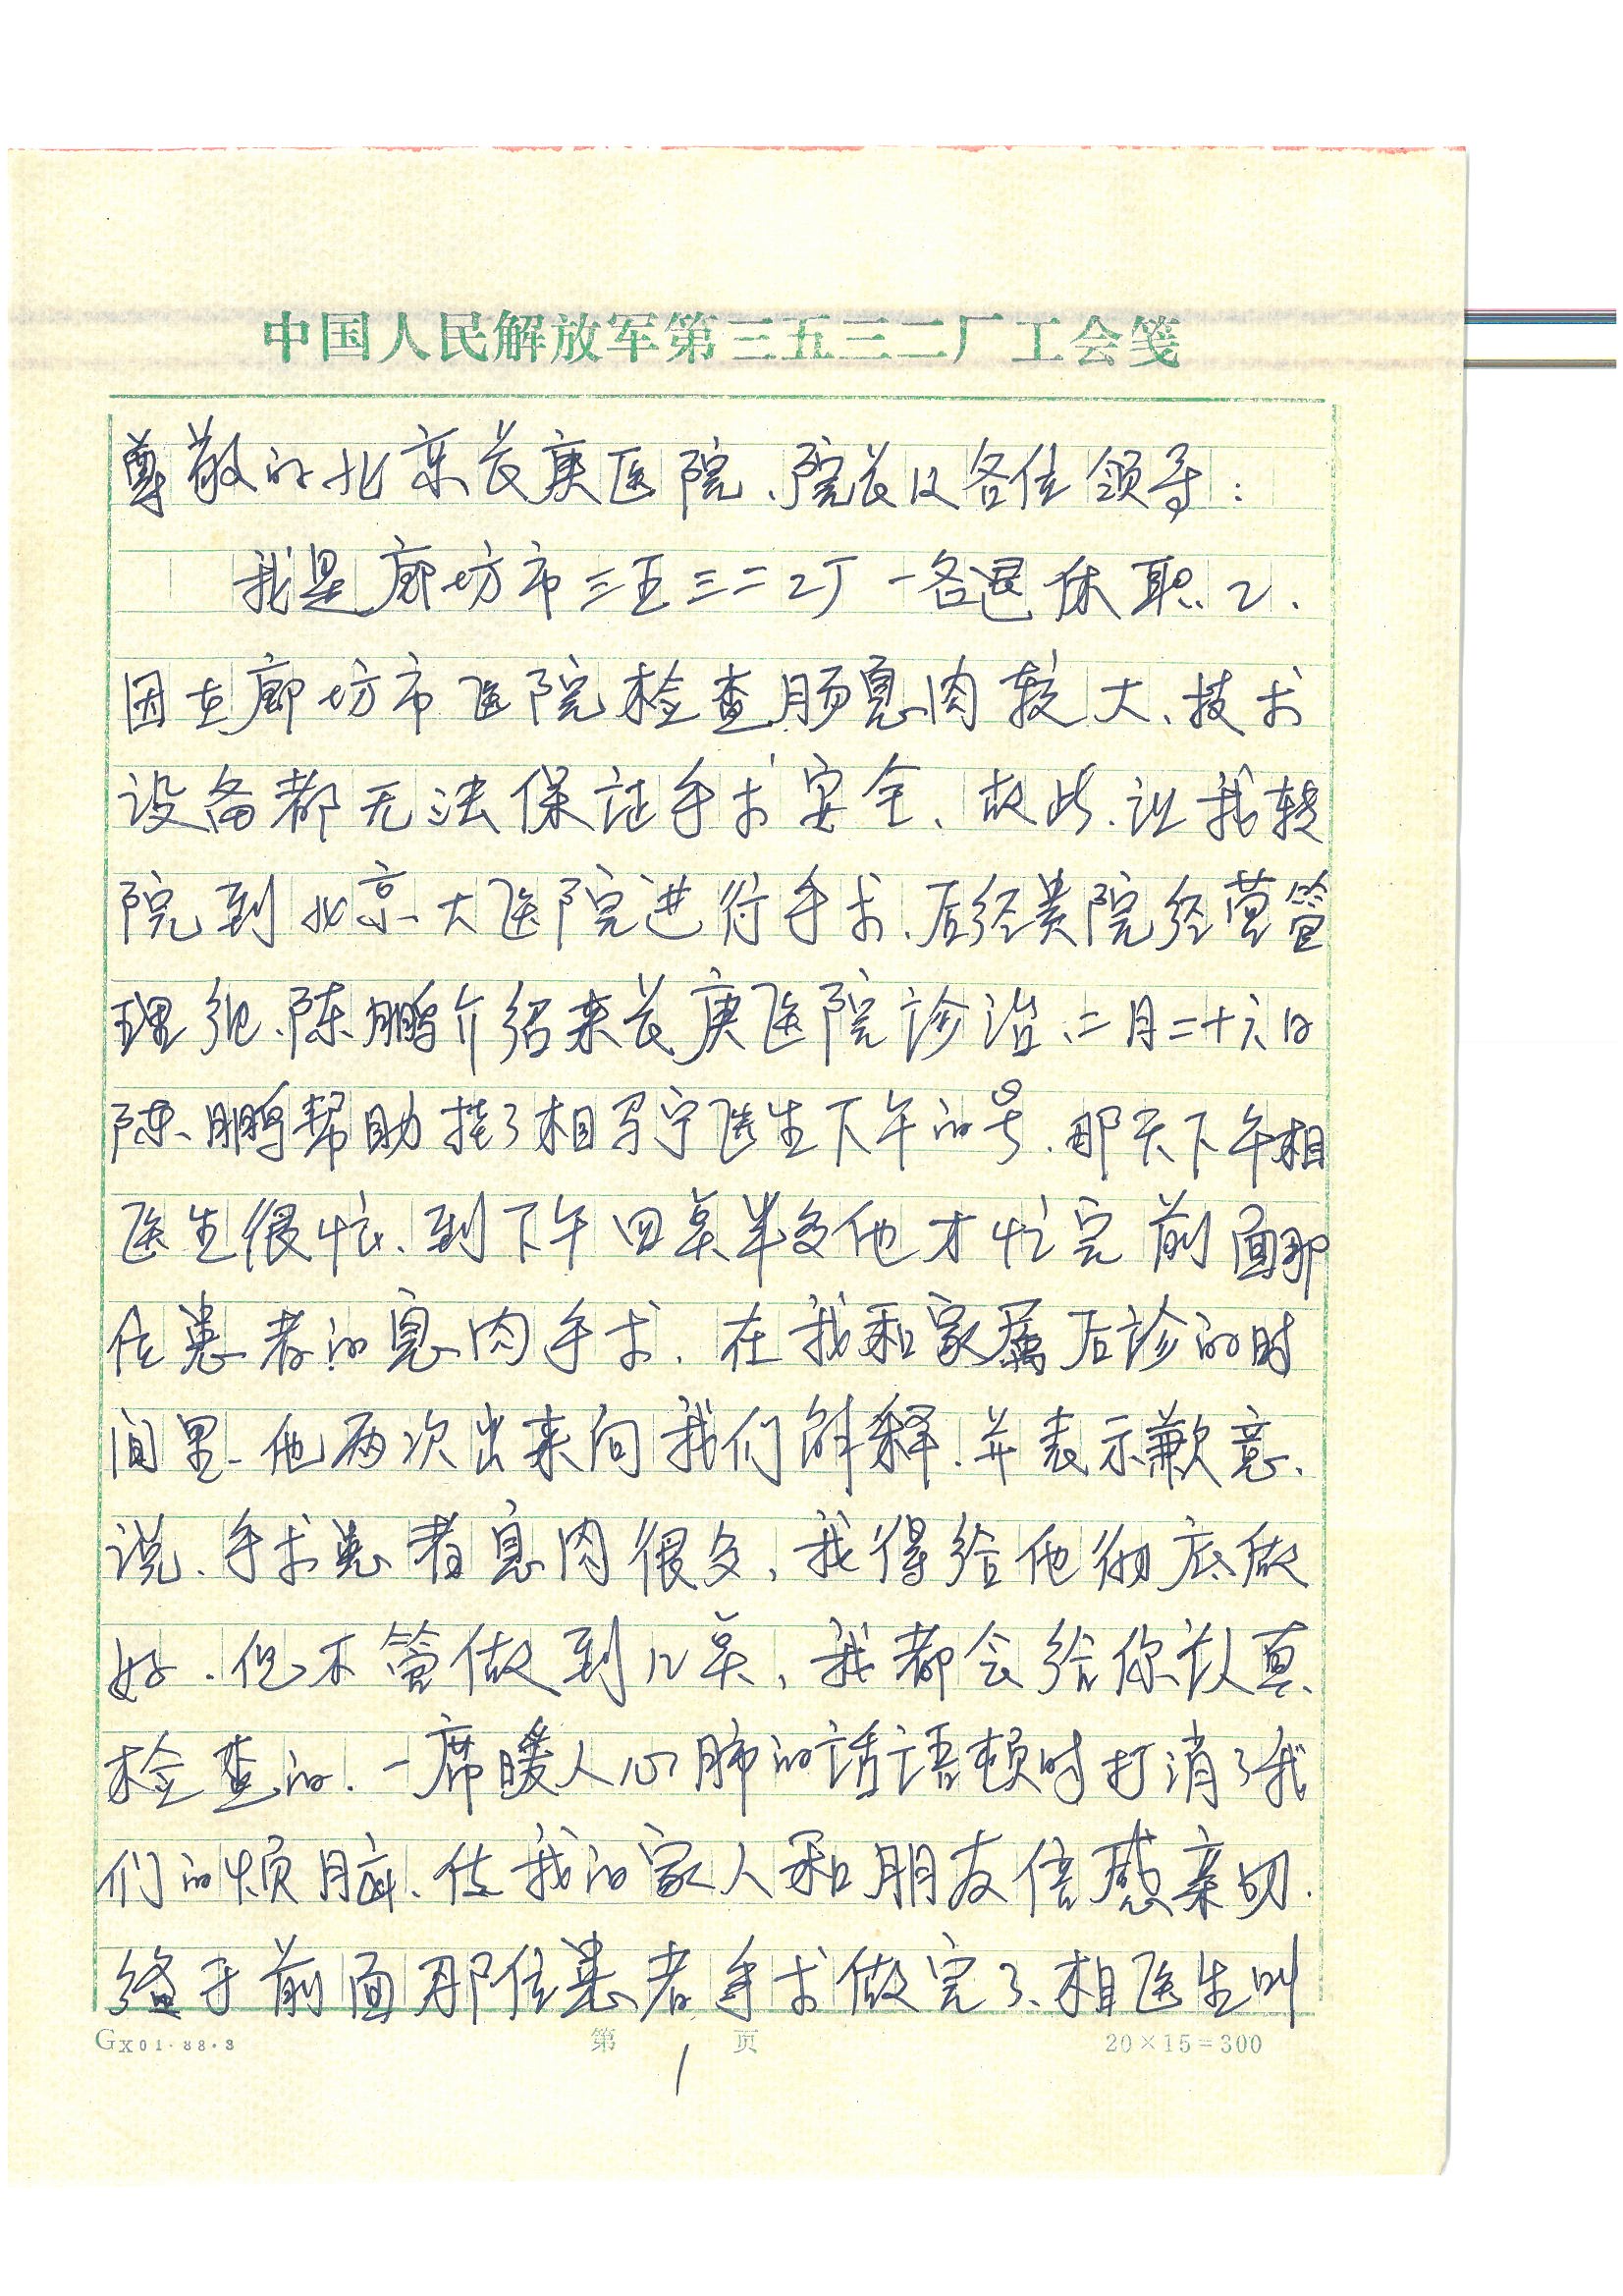 中国人民解放军第三五三二厂工会笺
尊敬的北京长庚医院、院长及各位领导：
我是廊坊市三五三二工厂一名退休职工.
因在廊坊市医院检查肠息肉较大、技术
设备都无法保证手术安全、故此、让我转
院到北京大医院进行手术、后经贵院经营管
理组、陈鹏介绍来长庚医院诊治、二月二十六日
陈鹏帮助挂了相写宁医生下午的号、那天下午相
医生很忙、到下午四点半多他才忙完前面那
位患者的息肉手术. 在我和家属后诊的时
间里、他两次出来向我们解释、并表示歉意、
说、手术患者息肉很多，我得给他彻底做
好. 但不管做到几点，我都会给你认真
检查的. 一席暖人心肺的话语顿时打消了我
们的烦脑、使我的家人和朋友倍感亲切.
终于前面那位患者手术做完了、相医生叫
GX01·88·3 第1页 20×15=300